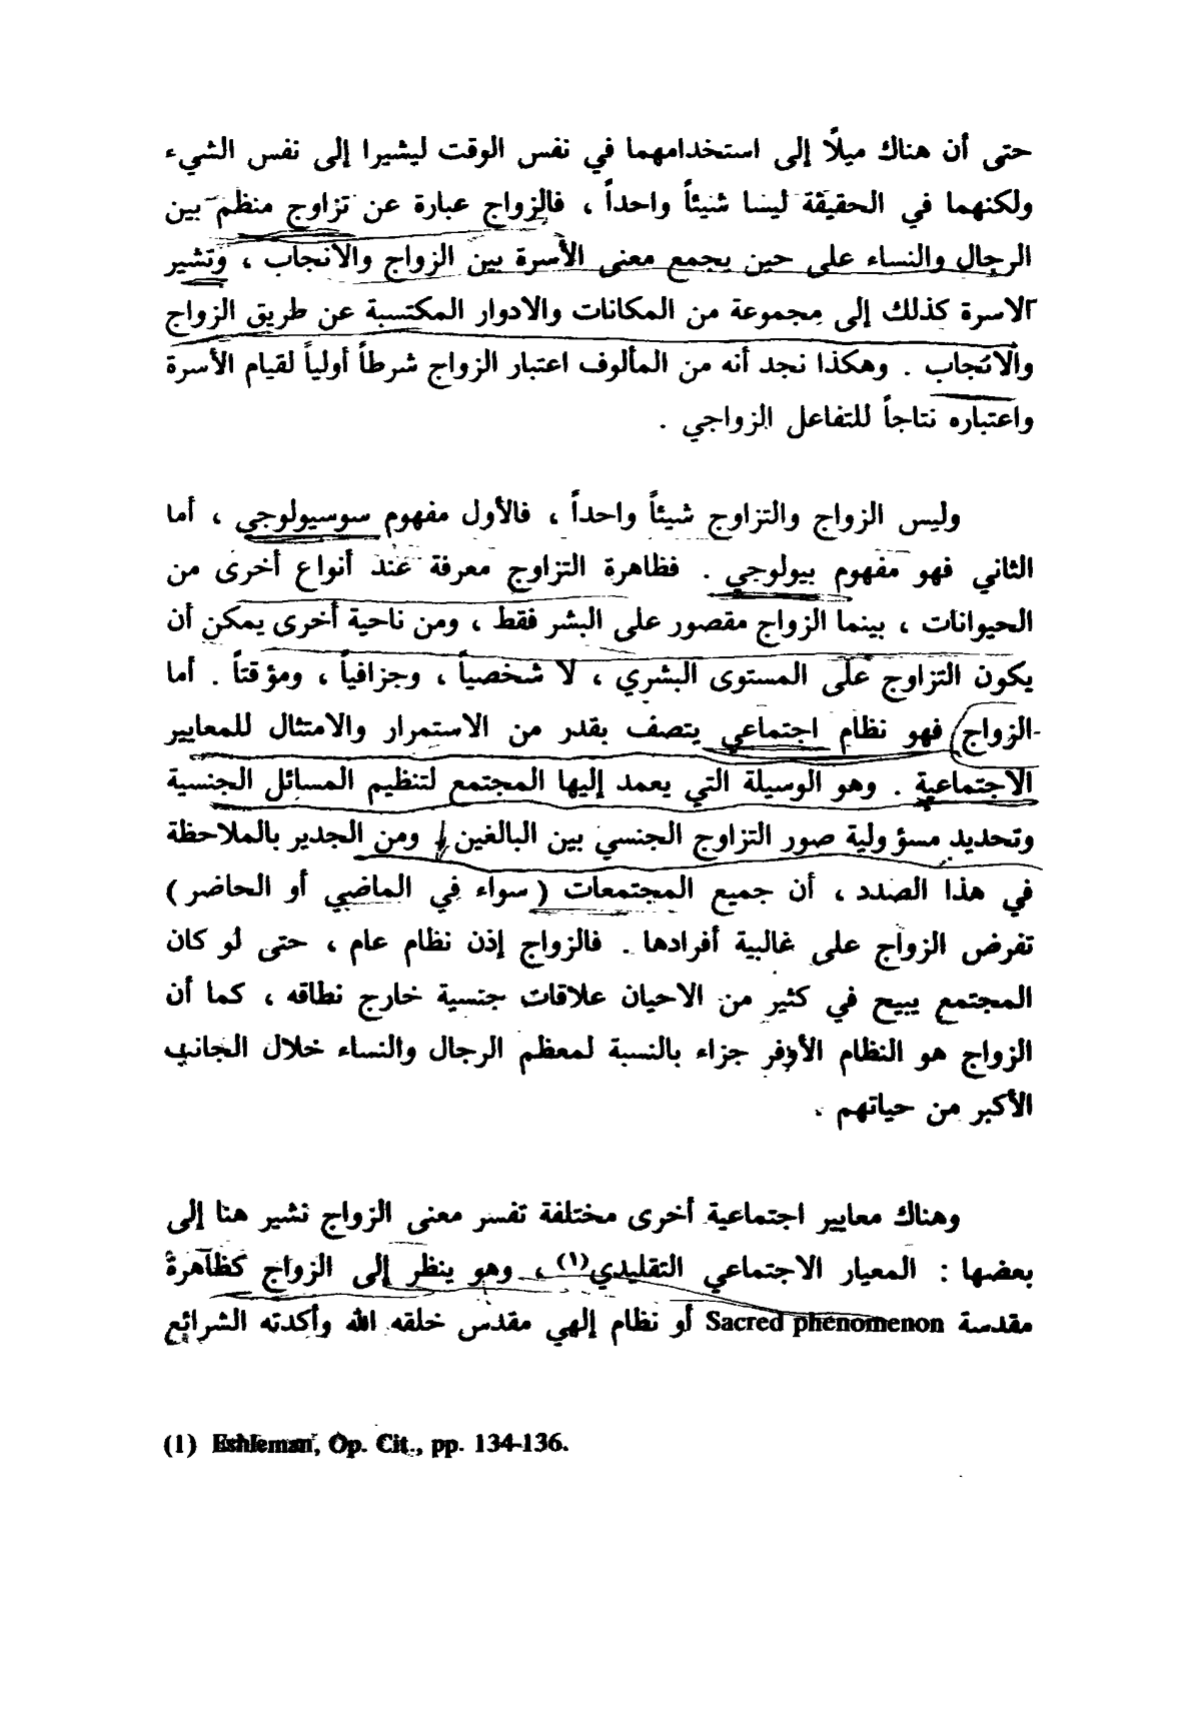 حتى أن هناك ميلًا إلى استخدامهما في نفس الوقت ليشيرا إلى نفس الشيء
ولكنهما في الحقيقة ليسا شيئاً واحداً ، فالزواج عبارة عن تزاوج منظم بين
الرجال والنساء على حين يجمع معنى الأسرة بين الزواج والانجاب ، وتشير
الاسرة كذلك إلى مجموعة من المكانات والادوار المكتسبة عن طريق الزواج
والانجاب . وهكذا نجد أنه من المألوف اعتبار الزواج شرطاً أولياً لقيام الأسرة
واعتباره نتاجاً للتفاعل الزواجي .
وليس الزواج والتزاوج شيئاً واحداً ، فالأول مفهوم سوسيولوجي ، أما
الثاني فهو مفهوم بيولوجي . فظاهرة التزاوج معرفة عند أنواع أخرى من
الحيوانات ، بينما الزواج مقصور على البشر فقط ، ومن ناحية أخرى يمكن أن
يكون التزاوج على المستوى البشري ، لا شخصياً ، وجزافياً ، ومؤقتاً . أما
الزواج فهو نظام اجتماعي يتصف بقدر من الاستمرار والامتثال للمعايير
الاجتماعية . وهو الوسيلة التي يعمد إليها المجتمع لتنظيم المسائل الجنسية
وتحديد مسؤولية صور التزاوج الجنسي بين البالغين ومن الجدير بالملاحظة
في هذا الصدد ، أن جميع المجتمعات ( سواء في الماضي أو الحاضر )
تفرض الزواج على غالبية أفرادها . فالزواج إذن نظام عام ، حتى لو كان
المجتمع يبيح في كثير من الاحيان علاقات جنسية خارج نطاقه ، كما أن
الزواج هو النظام الأوفر جزاء بالنسبة لمعظم الرجال والنساء خلال الجانب
الأكبر من حياتهم .
وهناك معايير اجتماعية أخرى مختلفة تفسر معنى الزواج نشير هنا إلى
بعضها : المعيار الاجتماعي التقليدي(١) ، وهو ينظر إلى الزواج كظاهرة
مقدسة Sacred phenomenon أو نظام إلهي مقدس خلقه الله وأكدته الشرائع
(1) Eshleman, Op. Cit., pp. 134-136.